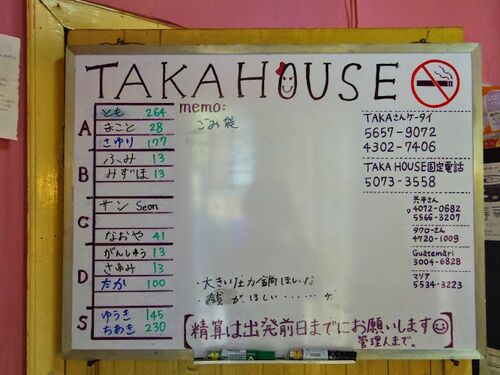 TAKA HOUSE
A
とも 264
まこと 28
さゆり 177
B
ふみ 13
みずほ 13
C
サン Seon
なおや 41
D
がんしゅう 13
さゆみ 13
たか 100
S
ゆうき 145
ちあき 230
memo:
ごみ袋
・大きい圧力鍋ほしいな
がほしい
[精算は出発前日までにお願いします
管理人まで。]
TAKAさんケータイ
5657-9072
4302-7406
TAKA HOUSE固定電話
5073-3558
4072-0682
5566-3207
タクローさん
4720-1009
Guatemari
3004-6828
マリア
5534-3223